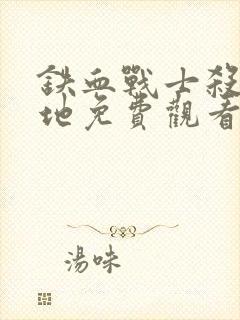 鉄血戰士殺
地免費觀看
湯味